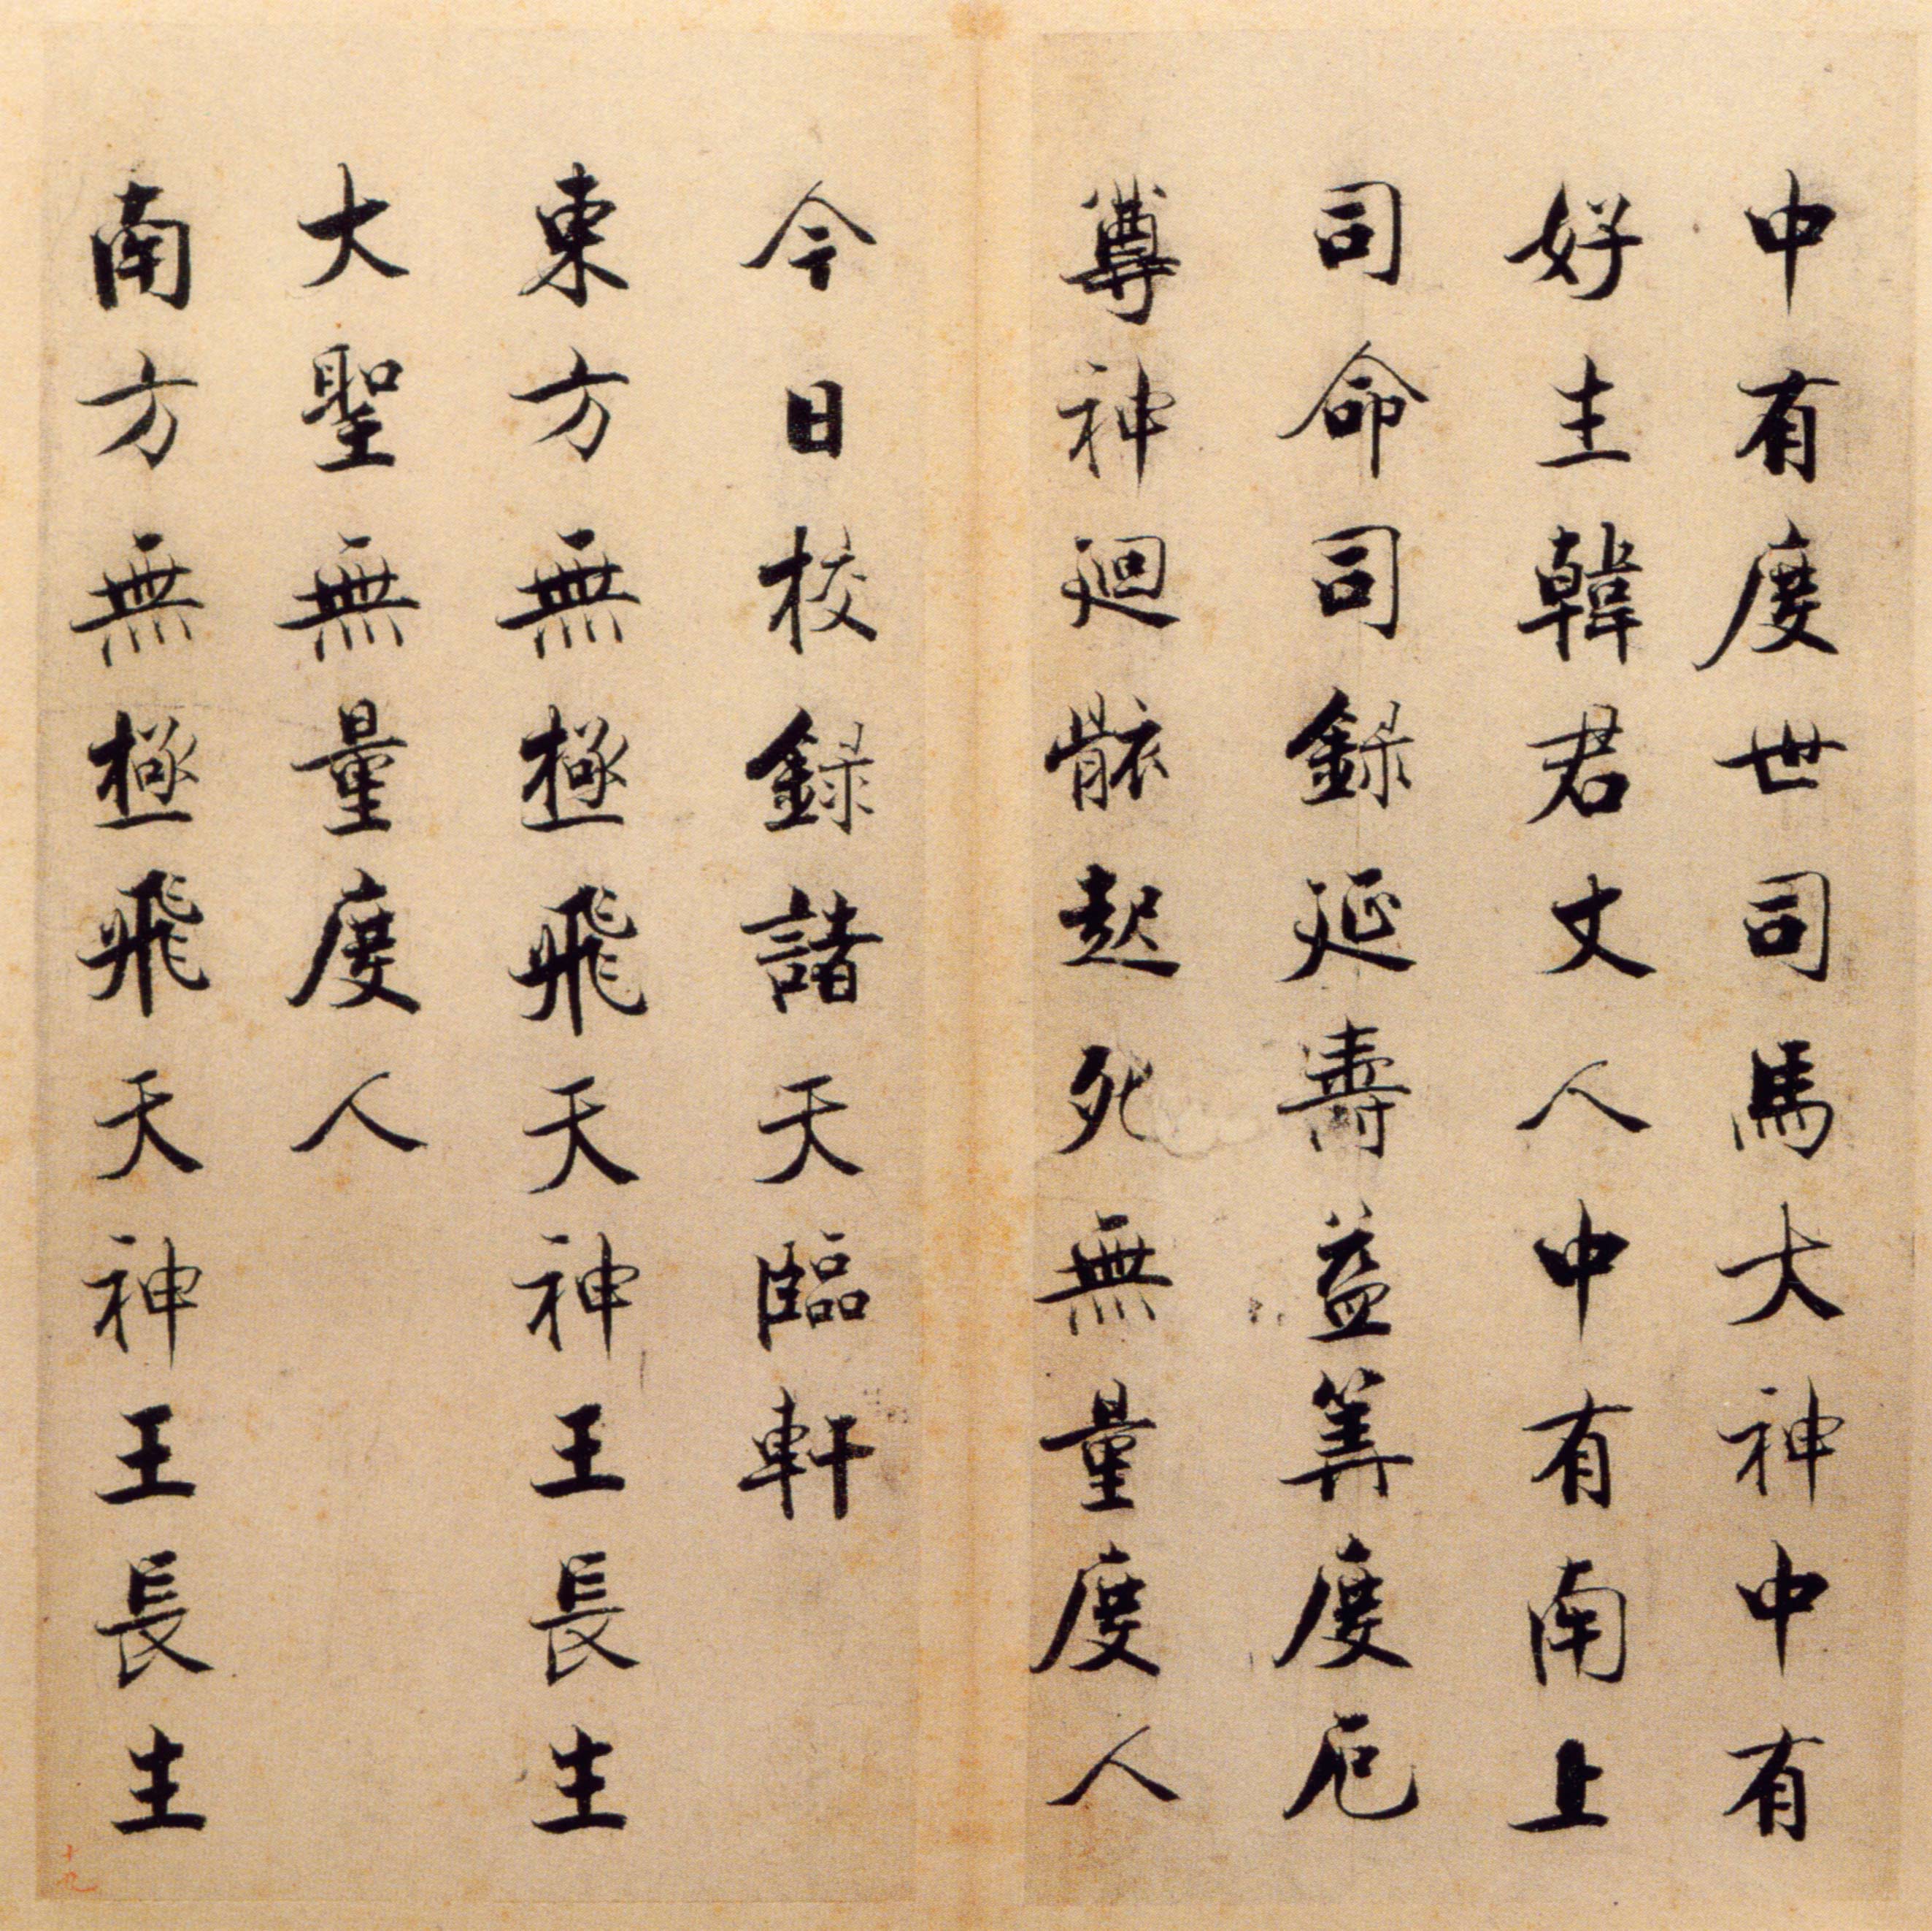 中有度世司馬大神中有
好生韓君丈人中有南上
司命司錄延壽益筭度厄
尊神迴骸起死無量度人
今日校錄諸天臨軒
東方無極飛天神王長生
大聖無量度人
南方無極飛天神王長生
十九